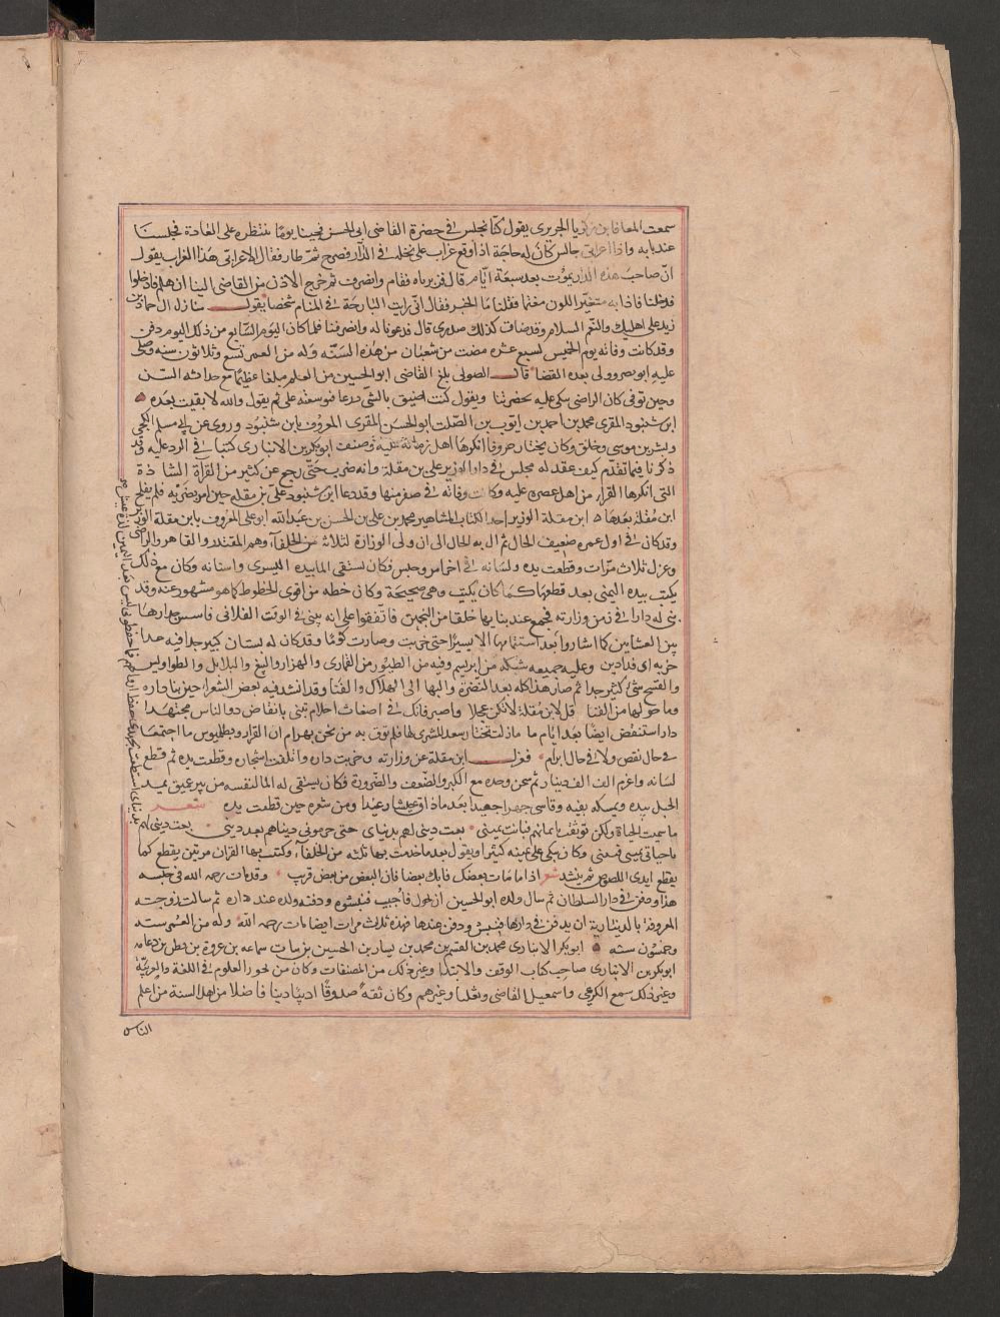 سمعت المعافا بن زكريا الجريرى يقول كنا نجلس فى حضرة القاضى ابى الحسين فجينا يوما ننتظره على العادة فجلسنا
عند بابه واذا اعرابى جالس كان له حاجة اذ اوقع غراب على نخلة فى الدار فصرخ ثم طار فقال الاعرابى هذا الغراب يقول
ان صاحب هذه الدار يموت بعد سبعة ايام قال فزبرناه فقام وانصرف ثم خرج الاذن من القاضى الينا ان هلم فادخلوا
فدخلنا فاذا به متغير اللون مغتما فقلنا ما الخبر فقال انى رايت البارحة فى المنام شخصا يقول منازل ال حماد بن
زيد على اهليك والنعم السلام وقد ضاق لذلك صدرى قال فدعونا له وانصرفنا فلما كان اليوم السابع من ذلك اليوم دفن
وقد كانت وفاته يوم الخميس لسبع عشره مضت من شعبان من هذه السنه وله من العمر تسع وثلاثون سنه وصلى
عليه ابو نصر وولى بعده القضا قال الصولى بلغ القاضى ابو الحسين من العلم مبلغا عظيما مع حداثة السن
وحين توفى كان الراضى يبكى عليه بحضرتنا ويقول كنت اضيق بالشى ذرعا فيوسعه على ثم يقول والله لا بقيت بعده
ابن شنبود المقرى محمد بن احمد بن ايوب بن الصلت ابو الحسن المقرى المعروف بابن شنبود وروى عن ابى مسلم الكجى
وبشر بن موسى وخلق وكان يختار حروفا انكرها اهل زمانه عليه وصنف ابو بكر بن الانبارى كتبا فى الرد عليه وقد
ذكرنا فيما تقدم كيف عقد له مجلس فى دار الوزير على بن مقلة وانه ضرب حتى رجع عن كثير من القرآة الشاذة
التى انكرها القرا من اهل عصره عليه وكانت وفاته فى صفر منها وقد دعا ابن شنبود على بن مقله حين امر بضربه فلم يفلح
ابن مقلة بعدها ابن مقلة الوزير احد الكتاب المشاهير محمد بن على بن الحسن بن عبد الله ابو على المعروف بابن مقلة الوزير
وقد كان فى اول عمره ضعيف الحال ثم ال به الحال الى ان ولى الوزارة لثلاث من الخلفآ وهم المقتدر والقاهر والراضى
وعزل ثلاث مرات وقطعت يده ولسانه فى اخر امره وحبس فكان يستقى الما بيده اليسرى واسنانه وكان مع ذلك
يكتب بيده اليمنى بعد قطعها كما كان يكتب وهى صحيحة وكان خطه من اقوى الخطوط كما هو مشهور عنه وقد
بنى له دارا فى زمن وزارته فجمع عند بنايها خلقا من المنجمين فاتفقوا على انه يبنى فى الوقت الفلانى فاسس جدارها
بين العشاين كما اشاروا بعد استتمامها الا يسيرا حتى خربت وصارت كوما وقد كان له بستان كبير جدا فيه عدة
خربه اى فدادين وعليه جميعه شبكه من ابريسم وفيه من الطيور من القمارى والهزار والببغ والبلابل والطواويس
والقبج شى كثير جدا ثم صار هذا كله بعد النضرة والبها الى الهلاك والفنا وقد انشد فيه بعض الشعرا حين بنا داره
وما حولها من الفنا قل لابن مقلة لا تكن عجلا واصبر فانك فى اضغاث احلام تبنى بانقاض دور الناس مجتهدا
دارا ستنقض ايضا بعد ايام ما زلت تختار سعد المشترى لها فلم توق به من نحس بهرام ان القران وبطليوس ما اجتمعا
فى حال نقص ولا فى حال ابرام فعزل ابن مقلة عن وزارته وخربت داره واتلفت اشجاره وقطعت يده ثم قطع
لسانه واغرم الف الف دينار ثم سجن وحده مع الكبر والضعف والضرورة فكان يستقى له الما لنفسه من بير عميق يمد
الحبل بيده ويمسكه بفيه وقاسى جهدا جهيدا بعد ما ذاق عيشا رغيدا ومن شعره حين قطعت يده شعر
ما سيمت الحياة ولكن توثقت بايمانهم فبانت يمينى بعت دينى لهم بدنياى حتى حرمونى دنياهم بعد دينى
يا حياتى بينى فبينى وكان يبكى على يمينه كثيرا ويقول بعد ما خدمت بها ثلثه من الخلفآ وكتبت بها القران مرتين يقطع كما
يقطع ايدى اللصوص ثم ينشد شعر اذا ما مات بعضك فابك بعضا فان البعض من بعض قريب وقد مات رحمه الله فى حبسه
هذا ودفن فى دار السلطان ثم سال ولده ابو الحسين ان يحول فاجيب فنبشوه ودفنه ولده عند داره ثم سالت زوجته
المعروفة بالدينارية ان يدفن فى دارها فنبش ودفن عندها فهذه ثلاث مرات ايضا مات رحمه الله وله من العمر ستة
وخمسون سنه ابو بكر الانبارى محمد بن القسم بن محمد بن يسار بن الحسين بن بيان بن سماعه بن فروة بن قطن بن دعامة
ابو بكر بن الانبارى صاحب كتاب الوقف والابتدا وغير ذلك من المصنفات وكان من بحور العلوم فى اللغة والعربية
وغير ذلك سمع الكديمى واسمعيل القاضى وثعلبا وغيرهم وكان ثقة صدوقا اديبا دينا فاضلا من اهل السنة من اعلم
الناس